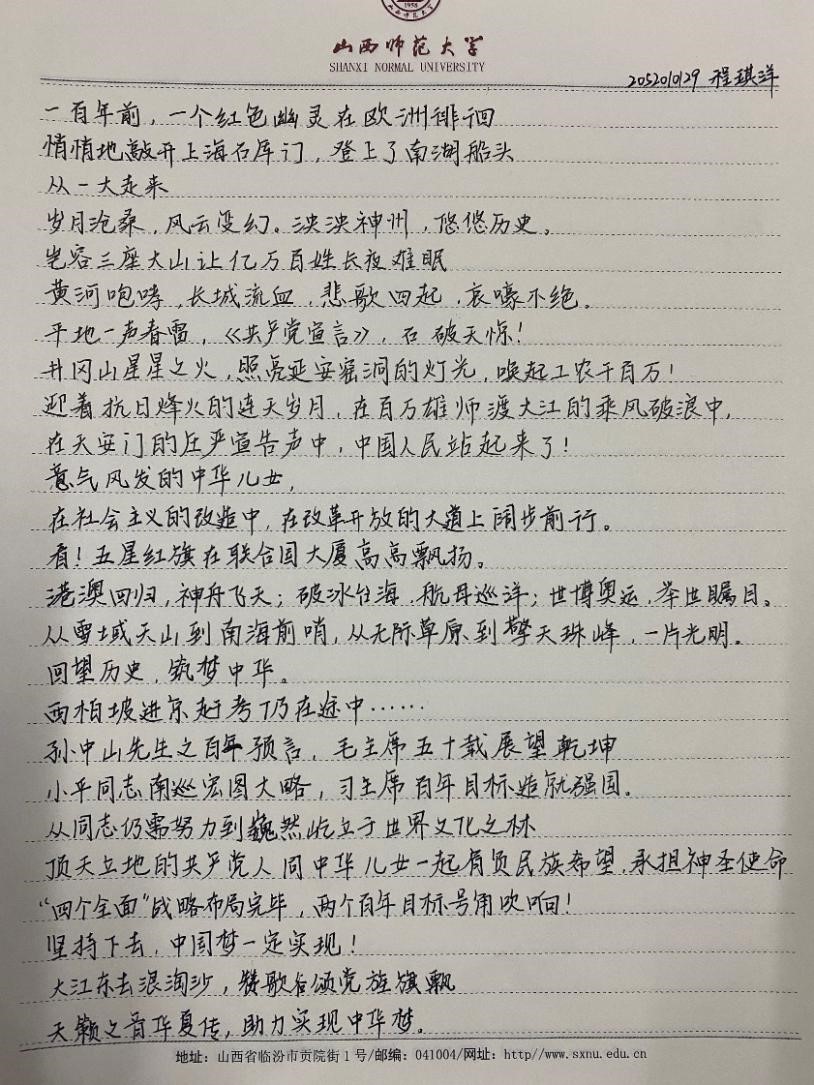 1958
山西师范大学
山西师范大学
SHANXI NORMAL UNIVERSITY
2052010129 程琪洋
一百年前，一个红色幽灵在欧洲徘徊
悄悄地敲开上海石库门，登上了南湖船头
从一大走来
岁月沧桑，风云变幻。泱泱神州，悠悠历史。
岂容三座大山让亿万百姓长夜难眠
黄河咆哮，长城流血，悲歌四起，哀嚎不绝。
平地一声春雷，《共产党宣言》，石破天惊！
井冈山星星之火，照亮延安窑洞的灯光，唤起工农千百万！
迎着抗日烽火的连天岁月，在百万雄师渡大江的乘风破浪中，
在天安门的庄严宣告声中，中国人民站起来了！
意气风发的中华儿女，
在社会主义的改造中，在改革开放的大道上阔步前行。
看！五星红旗在联合国大厦高高飘扬。
港澳回归，神舟飞天；破冰台海，航母巡洋；世博奥运，举世瞩目。
从雪域天山到南海前哨，从无际草原到擎天珠峰，一片光明。
回望历史，筑梦中华。
西柏坡进京赶考仍在途中……
孙中山先生之百年预言，毛主席五十载展望乾坤
小平同志南巡宏图大略，习主席百年目标造就强国。
从同志仍需努力到巍然屹立于世界文化之林
顶天立地的共产党人同中华儿女一起肩负民族希望，承担神圣使命
“四个全面”战略布局完毕，两个百年目标号角吹响！
坚持下去，中国梦一定实现！
大江东去浪淘沙，赞歌名颂党旌旗飘
天籁之音华夏传，助力实现中华梦。
地址：山西省临汾市贡院街1号/邮编：041004/网址：http//www.sxnu.edu.cn